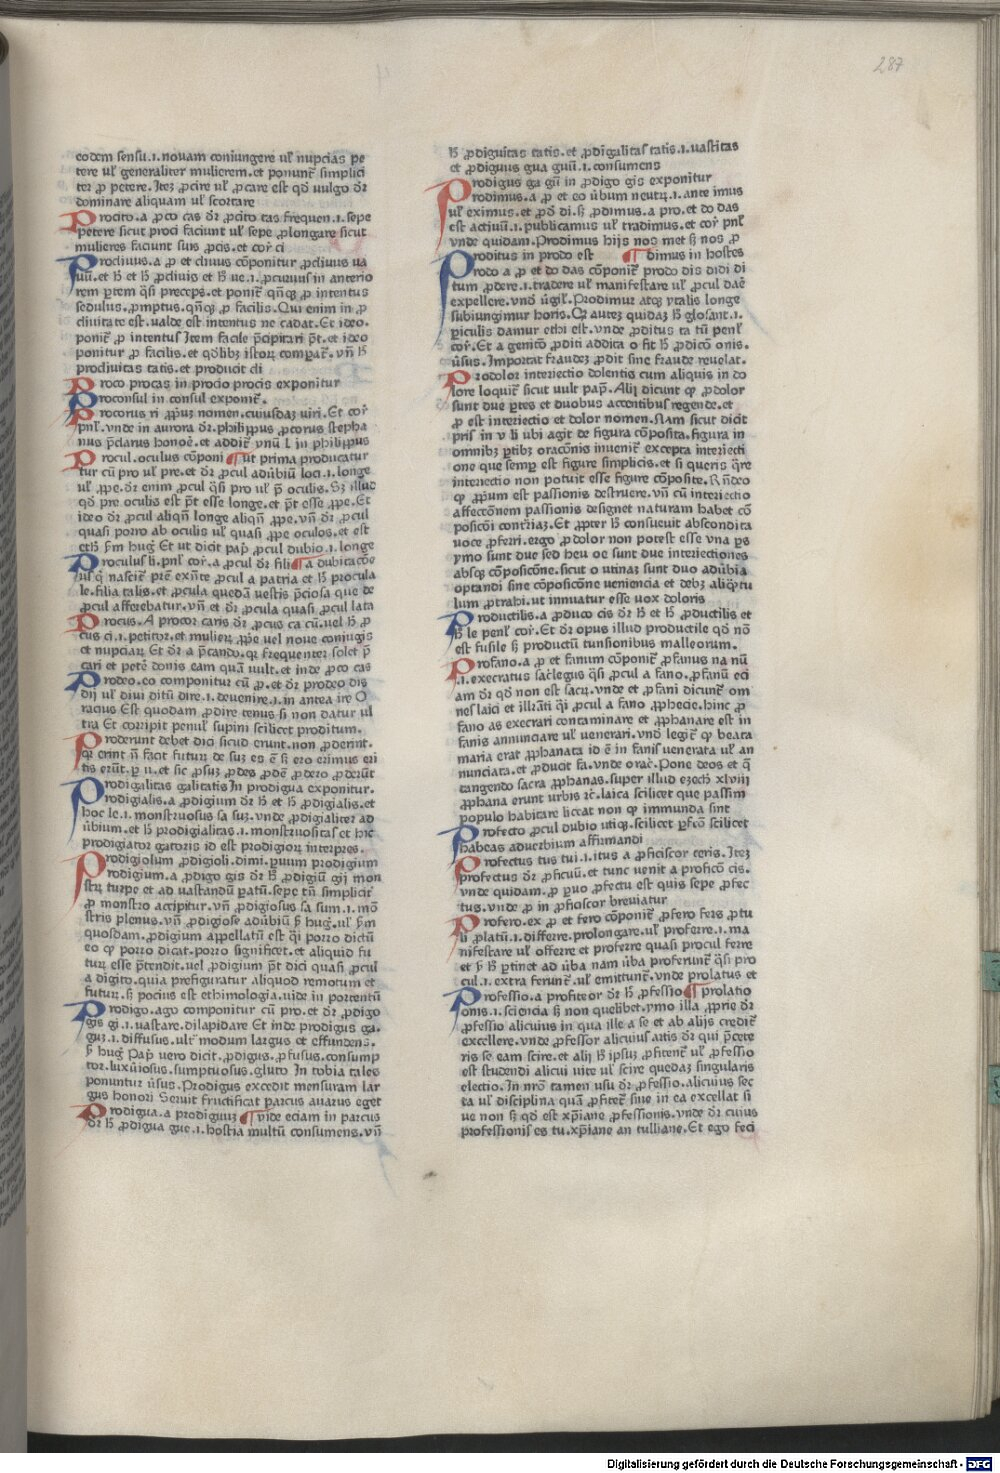 287
eodem sensu.i.nouam coniungere uł nupcias pe
tere uł generaliter mulierem.et ponunt̃ simplici
ter ꝓ petere. Iteꝫ ꝓcire uł ꝓcare est qđ uulgo dr̃
dominare aliquam uł scortare
Procito.a ꝓco cas dr̃ ꝓcito tas frequen.i.sepe
petere sicut proci faciunt uł sepe ꝓlongare sicut
mulieres faciunt suis ꝓcis.et cor̃ ci
Procliuus.a ꝓ et cliuus cõponitur ꝓcliuus ua
uũ.et ħ et ħ ꝓcliuis et ħ ue.i.ꝓcuruus in anterio
rem ꝑtem q̃si preceps.et ponit̃ qñqꝫ ꝓ intentus
sedulus.ꝓmptus.qñqꝫ ꝓ facilis.Qui enim in ꝓ
cliuitate est.ualde est intentus ne cadat.Et ideo.
ponit̃ ꝓ intentus Item facile p̃cipitari p̃t.et ideo
ponitur ꝓ facilis.et qđlibꝫ istoꝝ comparat̃.vñ ħ
procliuitas tatis.et producit cli
Proco procas in procio procis exponitur
Proconsul in consul exponit̃.
Procorus ri ꝓpuꝫ nomen.cuiusdaꝫ uiri.Et cor̃
pñł.vnde in aurora dr̃.philippus ꝓcorus stepha
nus p̃clarus honoẽ.et addit̃ vnũ l in philippus
Procul.oculus cõponi ¶ut prima producatur
tur cũ pro uł pre.et dr̃ ꝓcul adũbiũ loci.i.longe
uł ꝓpe.dr̃ enim ꝓcul q̃si pro uł p̃ oculis.Sꝫ illud
qđ pre oculis est p̃t esse longe.et p̃t esse ꝓpe.Et
ideo dr̃ ꝓcul aliqñ longe aliqñ ꝓpe.vñ dr̃ ꝓcul
quasi porro ab oculis uł quasi ꝓpe oculos.et est
etħ ẜm hug̃ Et ut dicit pap̃ ꝓcul dubio.i.longe
Proculus li.pñł cor̃.a ꝓcul dr̃ fili ¶a dubitacõe
us q̃ nascit̃ prẽ exñte ꝓcul a patria et ħ procula
le.filia talis.et ꝓcula quedã vestis p̃ciosa que de
ꝓcul afferebatur.vñ et dr̃ ꝓcula quasi ꝓcul lata
Procus.A procor caris dr̃ ꝓcus ca cũ.uel ħ ꝓ
cus ci.i.petitor.et mulieꝝ ꝓpe uel noue coniugis
et nupciaꝝ Et dr̃ a p̃cando.qꝛ frequenter solet p̃
cari et petẽ donis eam quã uult.et inde ꝓco cas
Prodeo.eo componitur cũ ꝓ.et dr̃ prodeo dis
dij uł diui ditũ dire.i.deuenire.i.in antea ire O
racius Est quodam ꝓdire tenus si non datur ul
tra Et corripit penuł supini scilicet proditum.
Proderunt debet dici sicud erunt.non ꝓderint.
qꝛ erint ñ facit futuꝝ de suꝫ es ẽ sꝫ ero erimus eri
tis erũt.ꝑ u.et sic ꝓsuꝫ ꝓdes ꝓdẽ ꝓdero ꝓderũt
Prodigalitas galitatis In prodigua exponitur.
Prodigialis.a ꝓdigium dr̃ ħ et ħ ꝓdigialis.et
hoc le.i.monstruosus sa suꝫ.vnde ꝓdigialiter ad
ũbium.et ħ prodigialitas.i.monstruositas et hic
prodigiator gatoris id est prodigioꝝ interpres.
Prodigiolum ꝓdigioli.dimi.ꝑuum prodigium
Prodigium.a ꝓdigo gis dr̃ ħ ꝓdigiũ gij mon
strꝫ turpe et ad uastandũ ꝑatũ.sepe tñ simplicit̃
ꝓ monstro accipitur.vñ ꝓdigiosus sa sum.i.mõ
stris plenus.vñ ꝓdigiose adũbiũ ẜ hug̃.uł ẜm
quosdam.ꝓdigium appellatũ est q̃i porro dictũ
eo ꝙ porro dicat.porro significet.et aliquid fu
tuꝝ esse p̃tendit.uel ꝓdigium p̃t dici quasi ꝓcul
a digito.quia prefiguratur aliquod remotum et
futuꝝ.sꝫ pocius est ethimologia.uide in portentũ
Prodigo.ago componitur cũ pro.et dr̃ ꝓdigo
gis gi.i.uastare.dilapidare Et inde prodigus ga.
guꝫ.i.diffusus.ult̃ modum largus et effundens.
ẜ hug̃ Pap̃ uero dicit.ꝓdigus.ꝓfusus.consump
tor.luxũiosus.sumptuosus.gluto In tobia tales
ponuntur ũsus.Prodigus excedit mensuram lar
gus honori Seruit fructificat parcus auarus eget
Prodigua.a prodiguuꝫ ¶vide eciam in parcus
dr̃ ħ ꝓdigua gue.i.hostia multũ consumens.vñ
ħ ꝓdiguitas tatis.et ꝓdĩgalitas tatis.i.uastitas
et ꝓdiguus gua guũ.i.consumens
Prodigus ga gũ in ꝓdigo gis exponitur
Prodimus.a ꝓ et eo ũbum neutꝝ.i.ante imus
uł eximus.et ꝓđ di.sꝫ ꝓdimus.a pro.et do das
est actiuũ.i.publicamus uł tradimus.et cor̃ pñł
vnde quidam.Prodimus hijs nos met sꝫ nos ꝓ
Proditus in prodo est ¶dimus in hostes
Prodo a ꝓ et do das cõponit̃ prodo dis didi di
tum ꝓdere.i.tradere uł manifestare uł ꝓcul daẽ
expellere.vnđ ũgił.Prodimur atqꝫ ytalis longe
subiungimur horis.Qꝛ auteꝫ quidaꝫ ħ glosant.i.
ꝑiculis damur ethi est.vnde ꝓditus ta tũ penł
cor̃.Et a genitõ ꝓditi addita o fit ħ ꝓdicõ onis.
ũsus.Importat fraudeꝫ ꝓdit sine fraude reuelat.
Prodolor interiectio dolentis cum aliquis in do
lore loquit̃ sicut uult pap̃.Alij dicunt ꝙ ꝓdolor
sunt due ꝑtes et duobus accentibus regende.et
ꝓ est interiectio et dolor nomen.Nam sicut dicit
pris in v li ubi agit de figura cõposita.figura in
omnibꝫ ꝑtibꝫ oracõnis inuenit̃ excepta interiecti
one que semꝑ est figure simplicis.et si queris q̃re
interiectio non potuit esse figure cõposite.Rñdeo
ꝙ ꝓpum est passionis destruere.vñ cũ interiectio
affectõnem passionis designet naturam habet cõ
posicõi cont̃riaꝫ.Et ꝓpter ħ consueuit abscondita
uoce ꝓferri.ergo ꝓdolor non potest esse vna ꝑs
ymo sunt due sed heu oc sunt due interiectiones
absqꝫ cõposicõne.sicut o utinaꝫ sunt duo adũbia
optandi sine cõposicõne ueniencia et debꝫ aliq̃ntu
lum ꝓtrahi.ut innuatur esse uox doloris
Productilis.a ꝓduco cis dr̃ ħ et ħ ꝓductilis et
ħ le penł cor̃.Et dr̃ opus illud productile qđ nõ
est fusile sꝫ productũ tunsionibus malleorum.
Profano.a ꝓ et fanum cõponit̃ ꝓfanus na nũ
.i.execratus sac̃legus q̃si ꝓcul a fano.ꝓfanũ eci
am dr̃ qđ non est sacꝝ.vnde et ꝓfani dicunt̃ om
nes laici et illr̃ati q̃i ꝓcul a fano ꝓphecie.hinc ꝓ
fano as execrari contaminare et ꝓphanare est in
fanis annunciare uł uenerari.vnđ legit̃ ꝙ beata
maria erat ꝓphanata id ẽ in fanis uenerata uł an
nunciata.et ꝓducit fa.vnde orac̃.Pone deos et q̃
tangendo sacra ꝓphanas.super illud ezecħ xlviij
ꝓphana erunt urbis ꝛc̃.laica scilicet que passim
populo habitare liceat non ꝙ immunda sint
Profecto ꝓcul dubio utiqꝫ.scilicet ꝑfcõ scilicet
habeas aduerbium affirmandi
Profectus tus tui.i.itus a ꝓficiscor ceris.Iteꝫ
profectus dr̃ ꝓficuũ.et tunc uenit a proficõ cis.
vnde quidam.ꝓ ꝑuo ꝓfectu est quis sepe ꝓfec
tus.vnde ꝓ in ꝓfiɔscor breuiatur
Profero.ex ꝓ et fero cõponit̃ ꝓfero fers ꝓtu
li ꝓlatũ.i.differre.prolongare.uł proferre.i.ma
nifestare uł offerre et proferre quasi procul ferre
et ẜ ħ ꝑtinet ad ũba nam ũba proferunt̃ q̃si pro
cul.i.extra ferunt̃.uł emittunt̃.vnde prolatus et
Professio.a profiteor dr̃ ħ ꝓfessio ¶prolatio
onis.i.sciencia sꝫ non quelibet.ymo illa ꝓprie dr̃
ꝓfessio alicuius in qua ille a se et ab alijs credit̃
excellere.vnde ꝓfessor alicuius artis dr̃ qui p̃cete
ris se eam scire.et alij ħ ipsuꝫ ꝓfitent̃ uł ꝓfessio
est studendi alicui uice uł scire quedaꝫ singularis
electio.In nrõ tamen usu dr̃ ꝓfessio.alicuius sec
ta uł disciplina quã ꝓfitet̃ siue in ea excellat si
ue non sꝫ qđ est xp̃iane ꝓfessionis.vnde dr̃ cuius
professionis es tu.xp̃iane an tulliane.Et ego feci
Digitalisierung gefördert durch die Deutsche Forschungsgemeinschaft - DFG